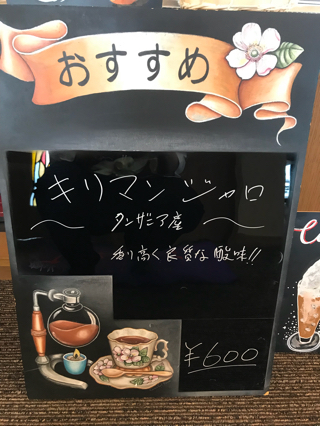 おすすめ
キリマンジャロ
〜 タンザニア産 〜
香り高く良質な酸味!!
¥600